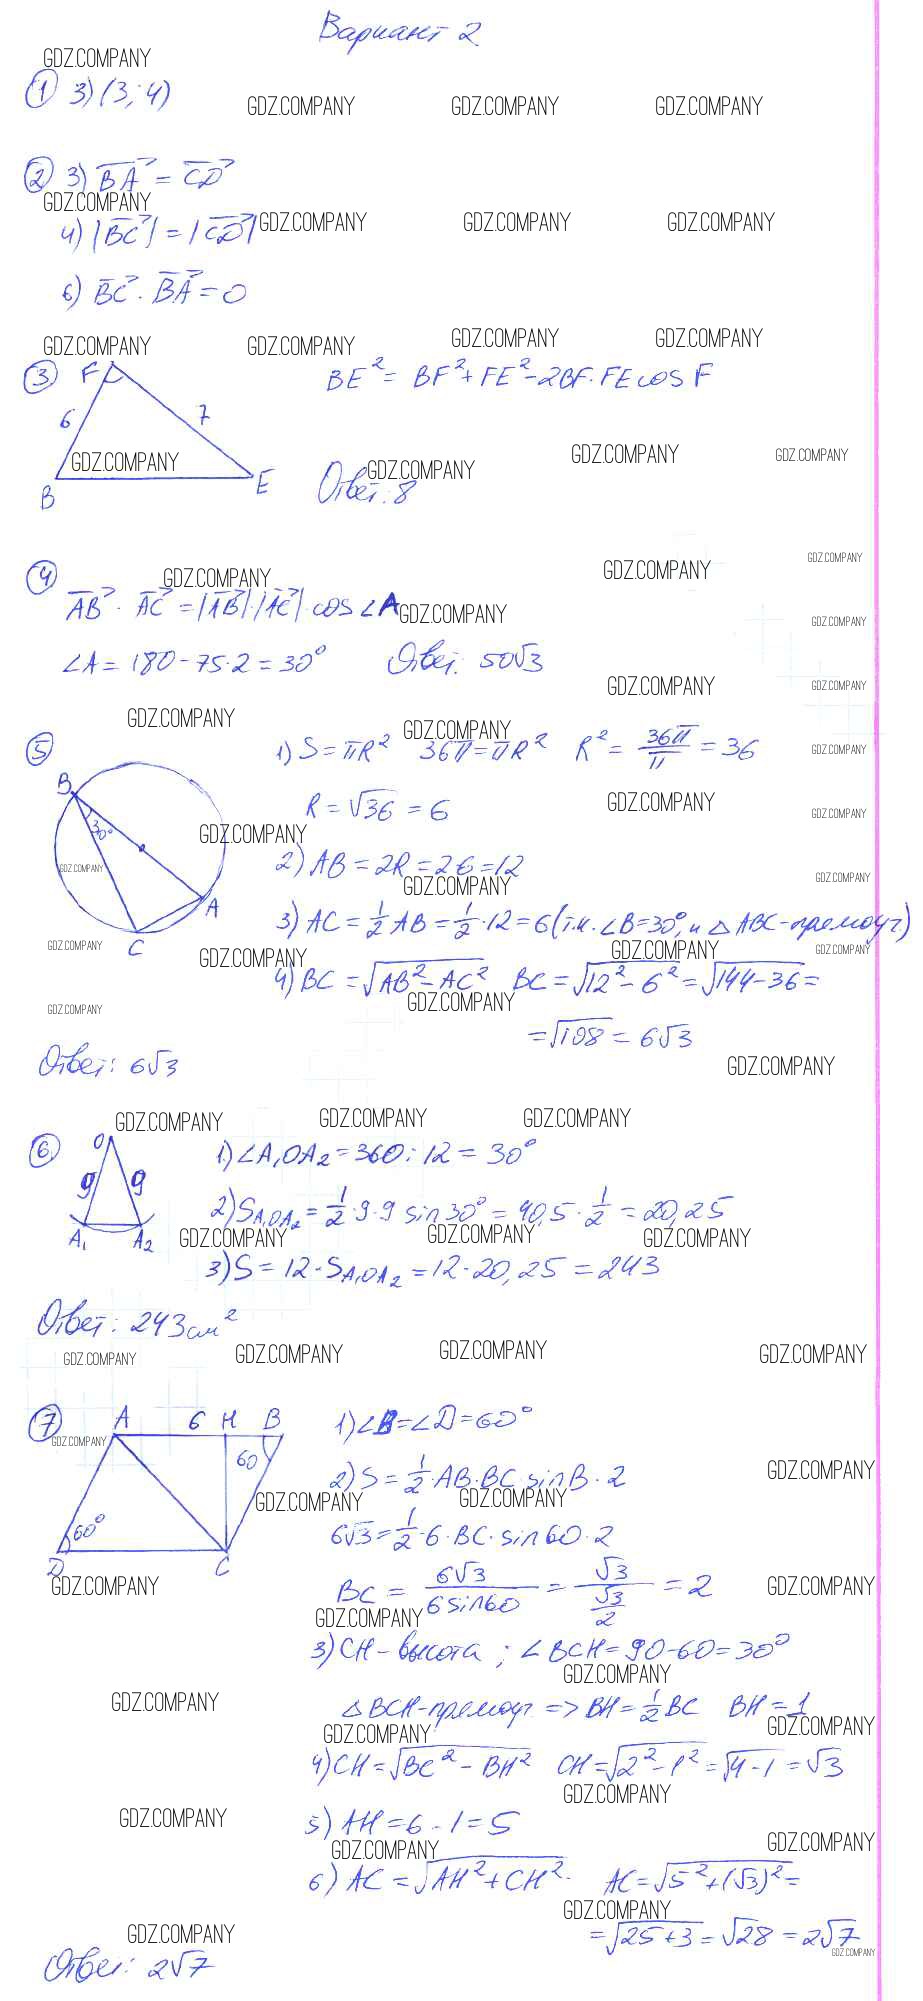 Вариант 2
GDZ.COMPANY
① 3) (3; 4)
GDZ.COMPANY GDZ.COMPANY GDZ.COMPANY
② 3) BA⃗ = CD⃗
GDZ.COMPANY
4) |BC⃗| = |CD⃗|
GDZ.COMPANY GDZ.COMPANY GDZ.COMPANY
6) BC⃗ · BA⃗ = 0
GDZ.COMPANY GDZ.COMPANY GDZ.COMPANY GDZ.COMPANY
③ F BE² = BF² + FE² - 2BF · FE cos F
6 7
GDZ.COMPANY GDZ.COMPANY GDZ.COMPANY GDZ.COMPANY
B E Ответ: 8
④ GDZ.COMPANY GDZ.COMPANY GDZ.COMPANY
AB⃗ · AC⃗ = |AB⃗| · |AC⃗| · cos ∠A
GDZ.COMPANY GDZ.COMPANY
∠A = 180 - 75·2 = 30° Ответ: 50√3
GDZ.COMPANY GDZ.COMPANY
GDZ.COMPANY GDZ.COMPANY
⑤ 1) S = πR² 36π = πR² R² = 36π/π = 36
GDZ.COMPANY
B R = √36 = 6
GDZ.COMPANY GDZ.COMPANY
30° GDZ.COMPANY
2) AB = 2R = 2·6 = 12
GDZ.COMPANY GDZ.COMPANY GDZ.COMPANY
A 3) AC = 1/2 AB = 1/2 · 12 = 6 (т.к. ∠B = 30°, и △ABC - прямоуг)
C
GDZ.COMPANY GDZ.COMPANY GDZ.COMPANY GDZ.COMPANY
4) BC = √AB² - AC² BC = √12² - 6² = √144 - 36 =
GDZ.COMPANY GDZ.COMPANY
= √108 = 6√3
Ответ: 6√3
GDZ.COMPANY
GDZ.COMPANY GDZ.COMPANY GDZ.COMPANY
⑥ O 1) ∠A₁OA₂ = 360 : 12 = 30°
9 9
2) S A₁OA₂ = 1/2 · 9 · 9 sin 30° = 40,5 · 1/2 = 20,25
A₁ A₂ GDZ.COMPANY GDZ.COMPANY GDZ.COMPANY
3) S = 12 · S A₁OA₂ = 12 · 20,25 = 243
Ответ: 243 см²
GDZ.COMPANY GDZ.COMPANY GDZ.COMPANY GDZ.COMPANY
⑦ A 6 H B 1) ∠B = ∠D = 60°
GDZ.COMPANY
60 2) S = 1/2 · AB · BC · sin B · 2
GDZ.COMPANY
GDZ.COMPANY GDZ.COMPANY
60° 6√3 = 1/2 · 6 · BC · sin 60 · 2
D C
BC = 6√3/6 sin 60 = √3/(√3/2) = 2
GDZ.COMPANY GDZ.COMPANY
GDZ.COMPANY
3) CH - высота; ∠BCH = 90 - 60 = 30°
GDZ.COMPANY
GDZ.COMPANY
△BCH - прямоуг => BH = 1/2 BC BH = 1
GDZ.COMPANY GDZ.COMPANY
4) CH = √BC² - BH² CH = √2² - 1² = √4 - 1 = √3
GDZ.COMPANY
GDZ.COMPANY
5) AH = 6 - 1 = 5
GDZ.COMPANY GDZ.COMPANY
6) AC = √AH² + CH² AC = √5² + (√3)² =
GDZ.COMPANY
GDZ.COMPANY
= √25 + 3 = √28 = 2√7
GDZ.COMPANY
Ответ: 2√7